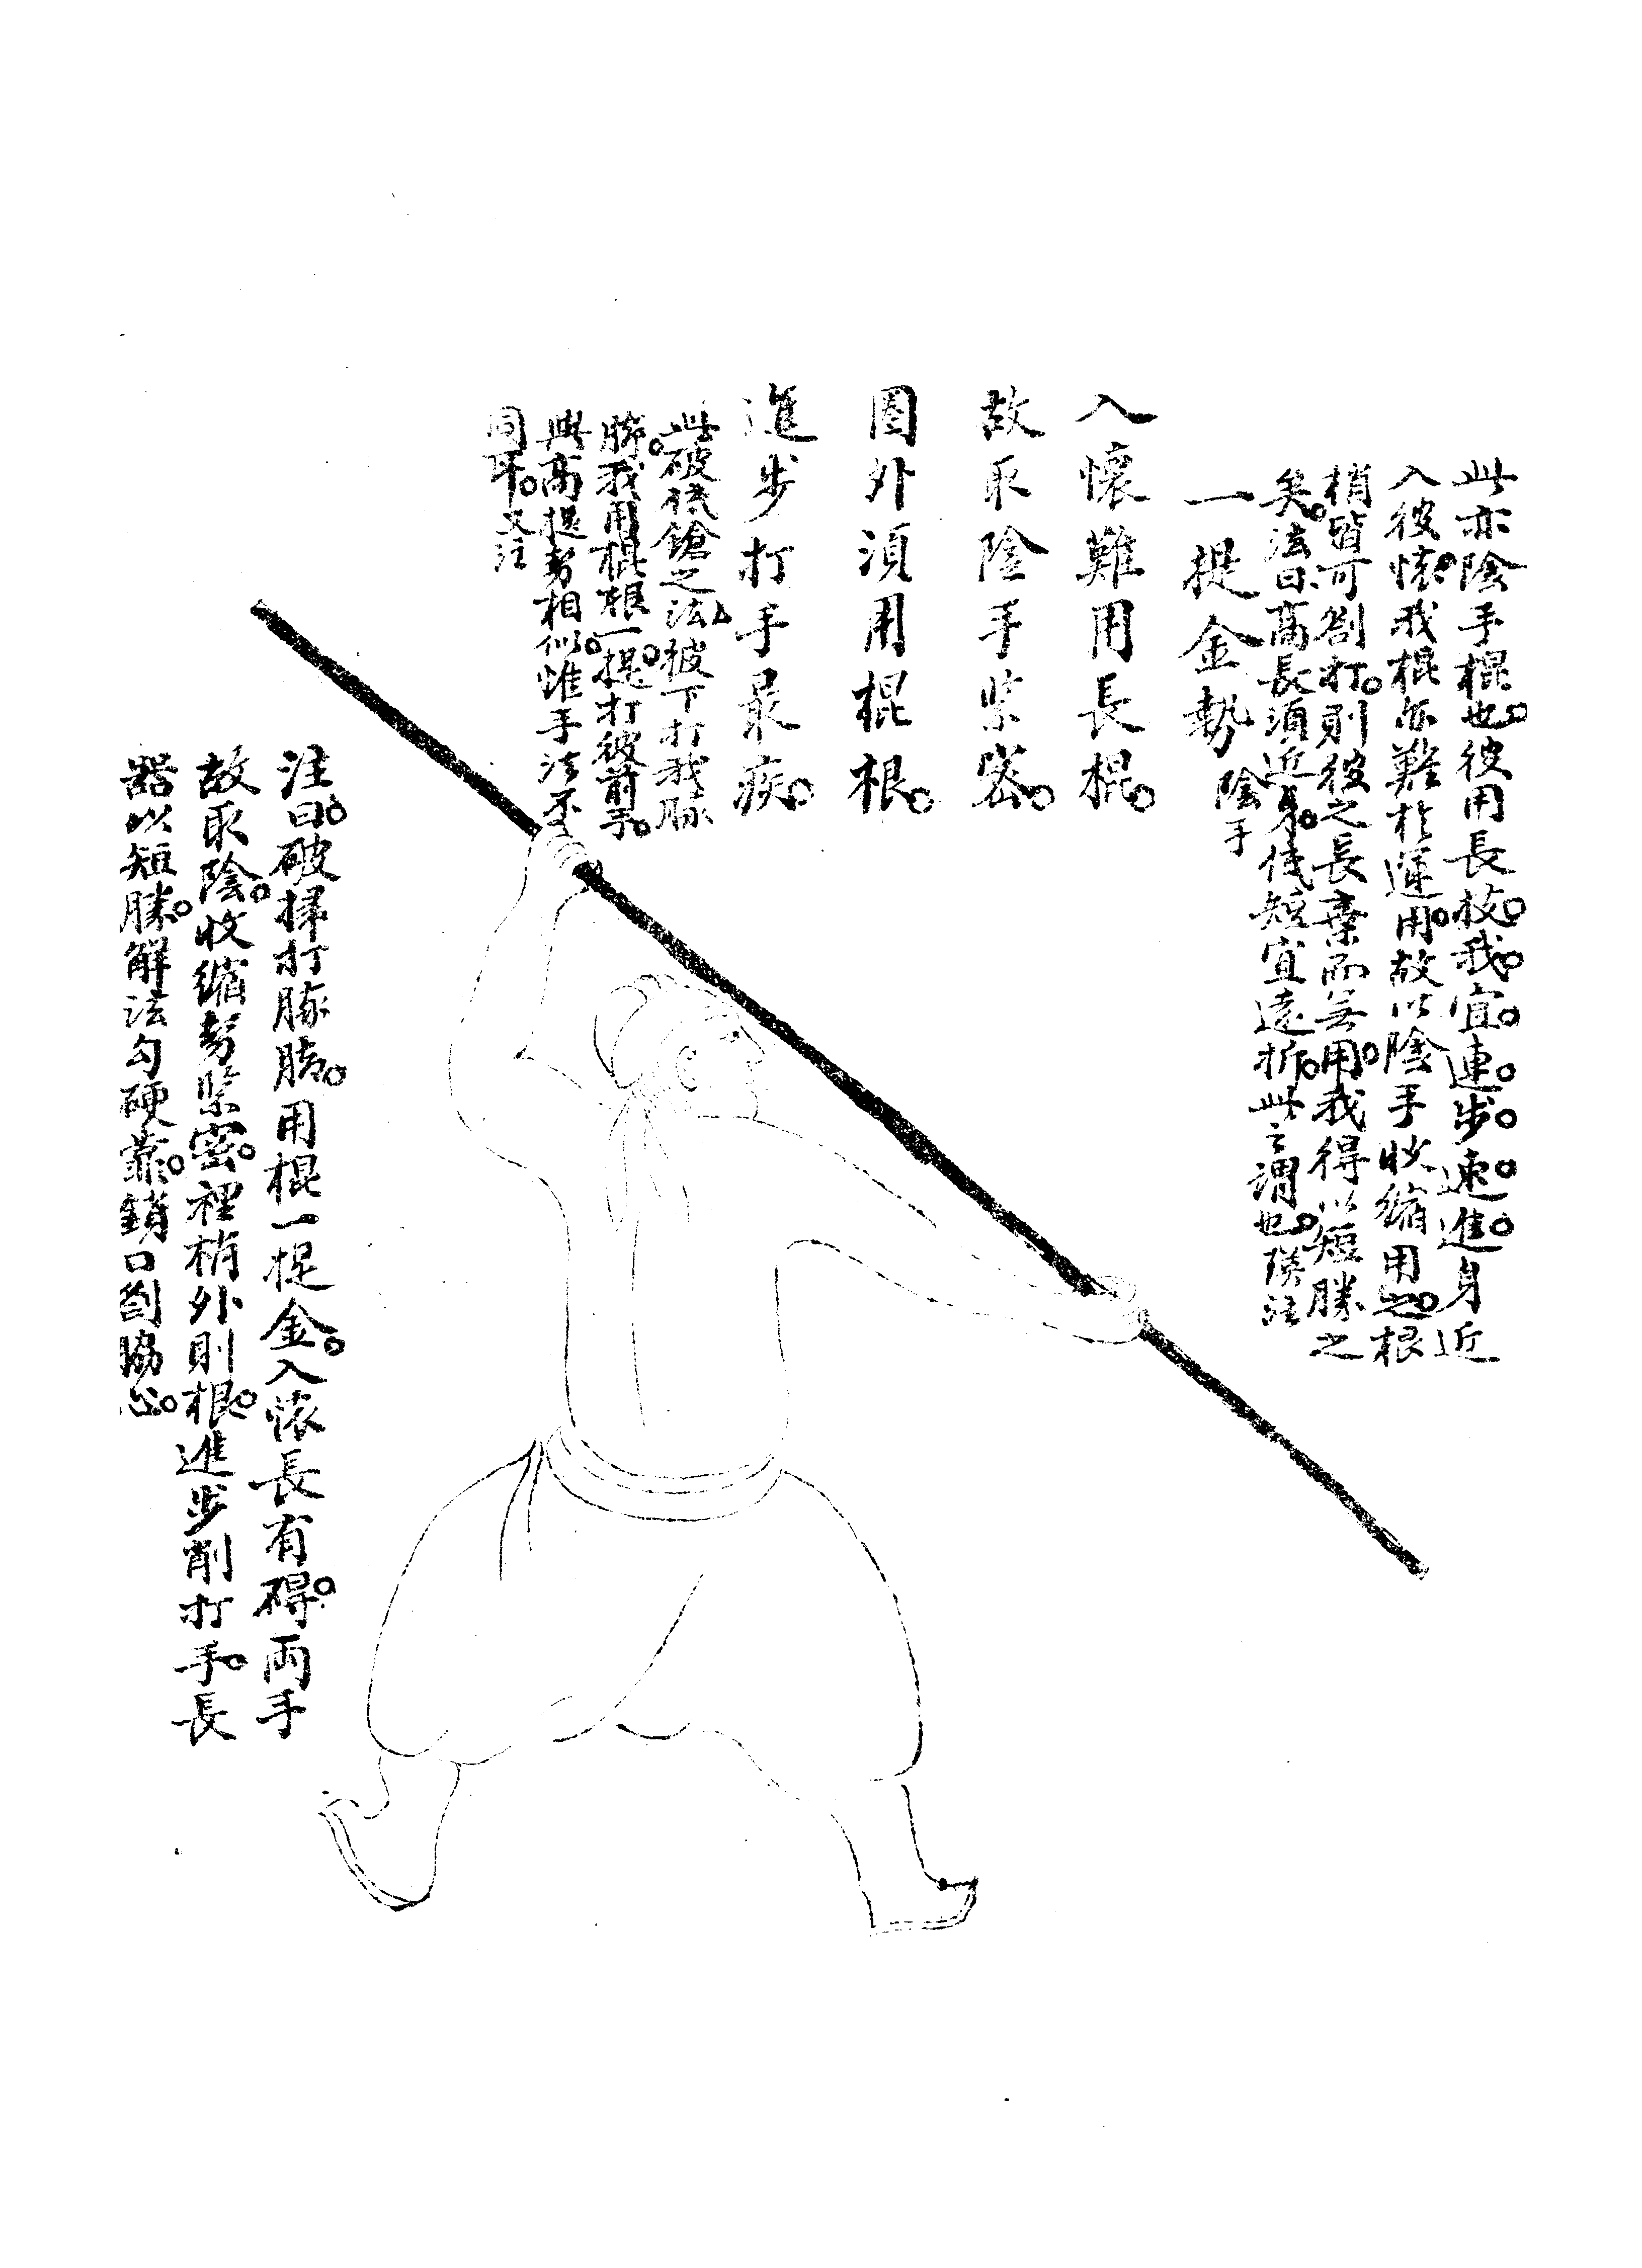 此亦陰手棍也。彼用長技。我宜連步速進身近
入彼懷。我棍亦難於運用。故以陰手收縮用之。根
梢皆可劄打。則彼之長棄而無用。我得以短勝之
矣。法曰高長須近身。低短宜遠拆。此之謂也。瑛注
一提金勢 陰手
入懷難用長棍。
故取陰手紧密。
圈外須用棍根。
進步打手最疾。
此破低鎗之法。彼下打我臁
腨。我用棍根一提。打彼前手。
與高提勢相似。惟手法不
同耳。又注
注曰。破掃打臁腨。用棍一提金。入懷長有碍。両手
故取陰。收縮勢紧密。裡梢外則根。進步削打手。長
器以短勝。解法勾硬靠。鎖口劄脇心。